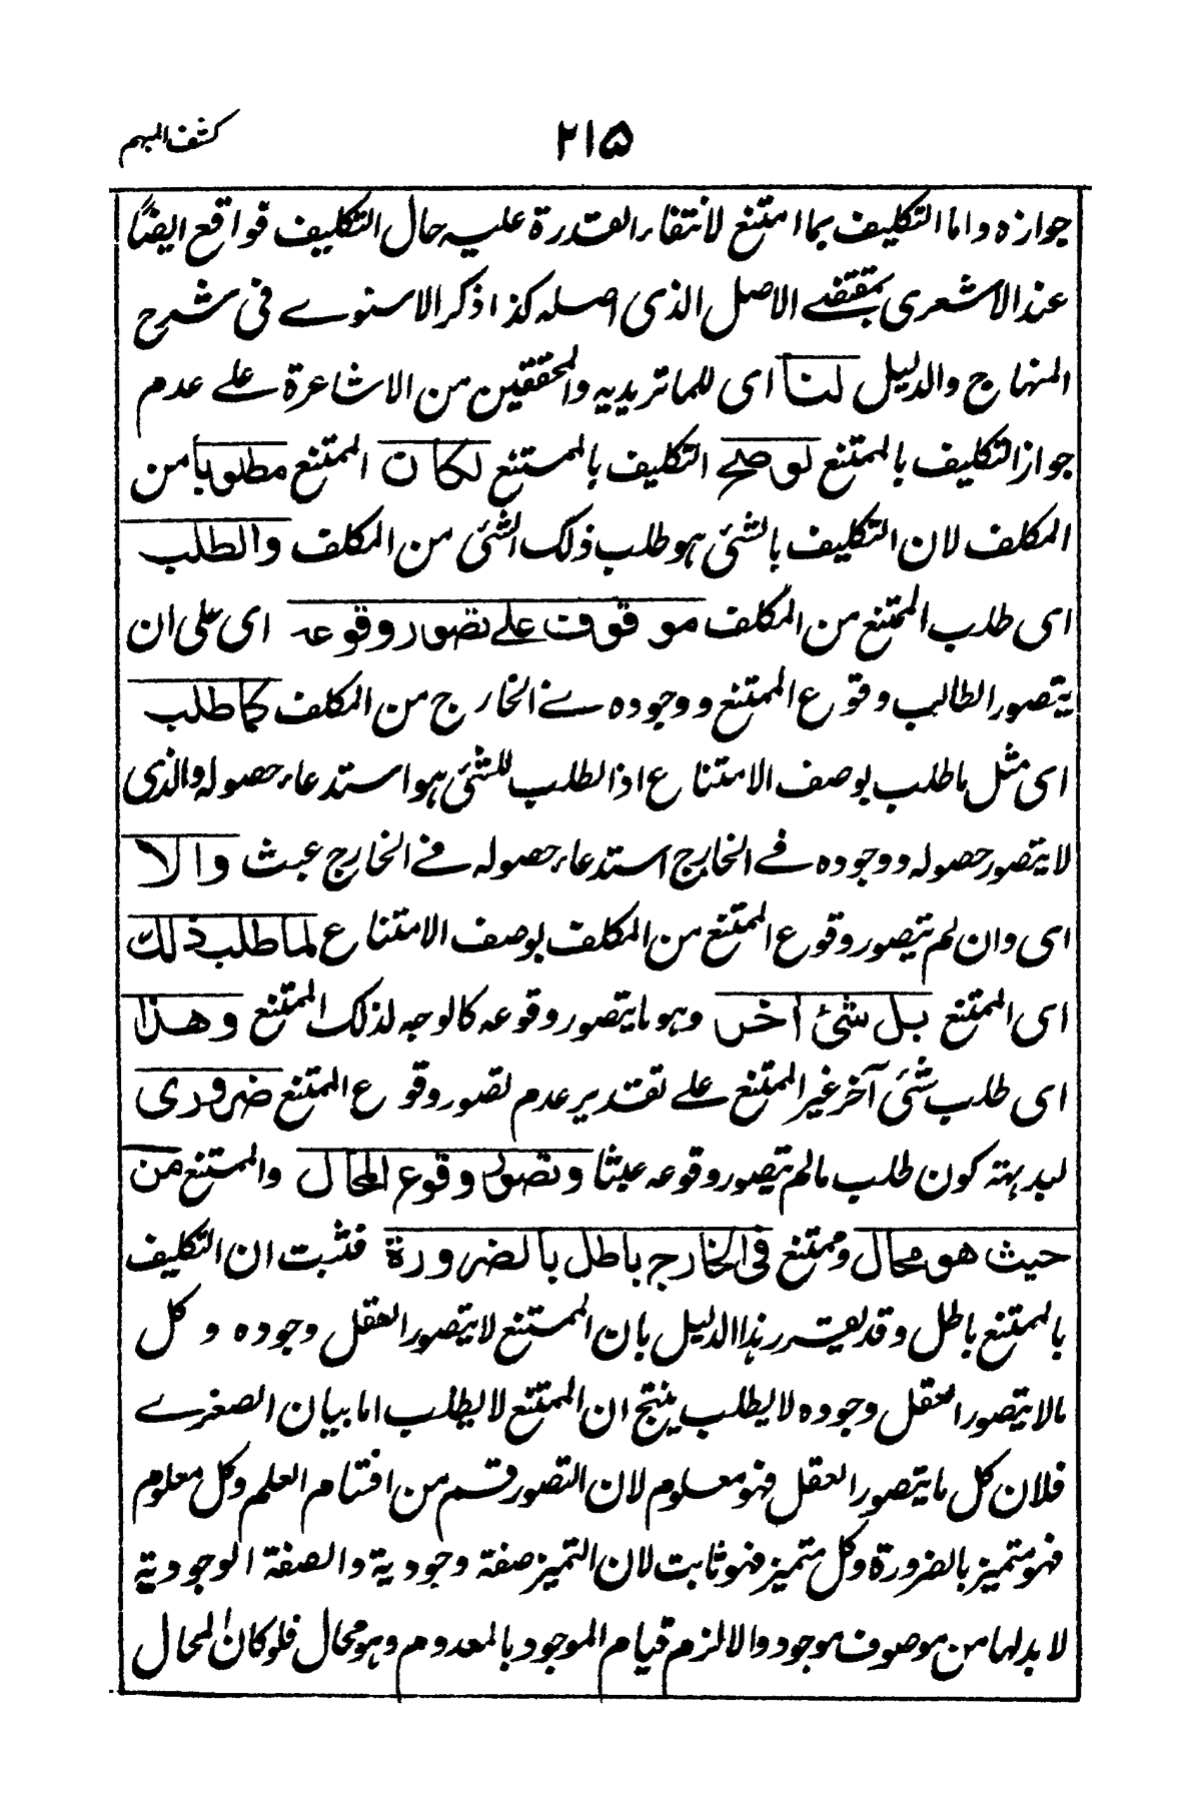 كشف المبهم
۲۱۵
جوازه واما التكليف بما امتنع لانتفاء القدرة عليه حال التكليف فواقع ايضًا
عند الاشعرى بمقتضے الاصل الذى اصله كذا ذكر الاسنوے فى شرح
المنهاج والدليل لنا اى للماتريديه والمحققين من الاشاعرة علے عدم
جواز التكليف بالممتنع لو صح التكليف بالممتنع لكان الممتنع مطلوبا من
المكلف لان التكليف بالشئ هو طلب ذلك الشئ من المكلف والطلب
اى طلب الممتنع من المكلف موقوف علے تصور وقوعه اى على ان
يتصور الطالب وقوع الممتنع ووجوده فے الخارج من المكلف كما طلب
اى مثل ما طلب بوصف الامتناع اذ الطلب للشئ هو استدعاء حصوله والذى
لا يتصور حصوله ووجوده فے الخارج استدعاء حصوله فے الخارج عبث والا
اى وان لم يتصور وقوع الممتنع من المكلف بوصف الامتناع لما طلب ذلك
اى الممتنع بل شئ اخر وهو ما يتصور وقوعه كالوجه لذلك الممتنع وهذا
اى طلب شئ آخر غير الممتنع علے تقدير عدم تصور وقوع الممتنع ضرورى
لبديهته كون طلب مالم يتصور وقوعه عبثا وتصور وقوع المحال والممتنع من
حيث هو محال وممتنع فى الخارج باطل بالضرورة فثبت ان التكليف
بالممتنع باطل وقد يقرر هذا الدليل بان الممتنع لا يتصور العقل وجوده وكل
مالا يتصور العقل وجوده لا يطلب ينتج ان الممتنع لا يطلب اما بيان الصغرے
فلان كل ما يتصور العقل فهو معلوم لان التصور قسم من اقسام العلم وكل معلوم
فهو متميز بالضرورة وكل متميز فهو ثابت لان التميز صفة وجودية والصفة الوجودية
لا بد لها من موصوف موجود والا لزم قيام الموجود بالمعدوم وهو محال فلو كان المحال